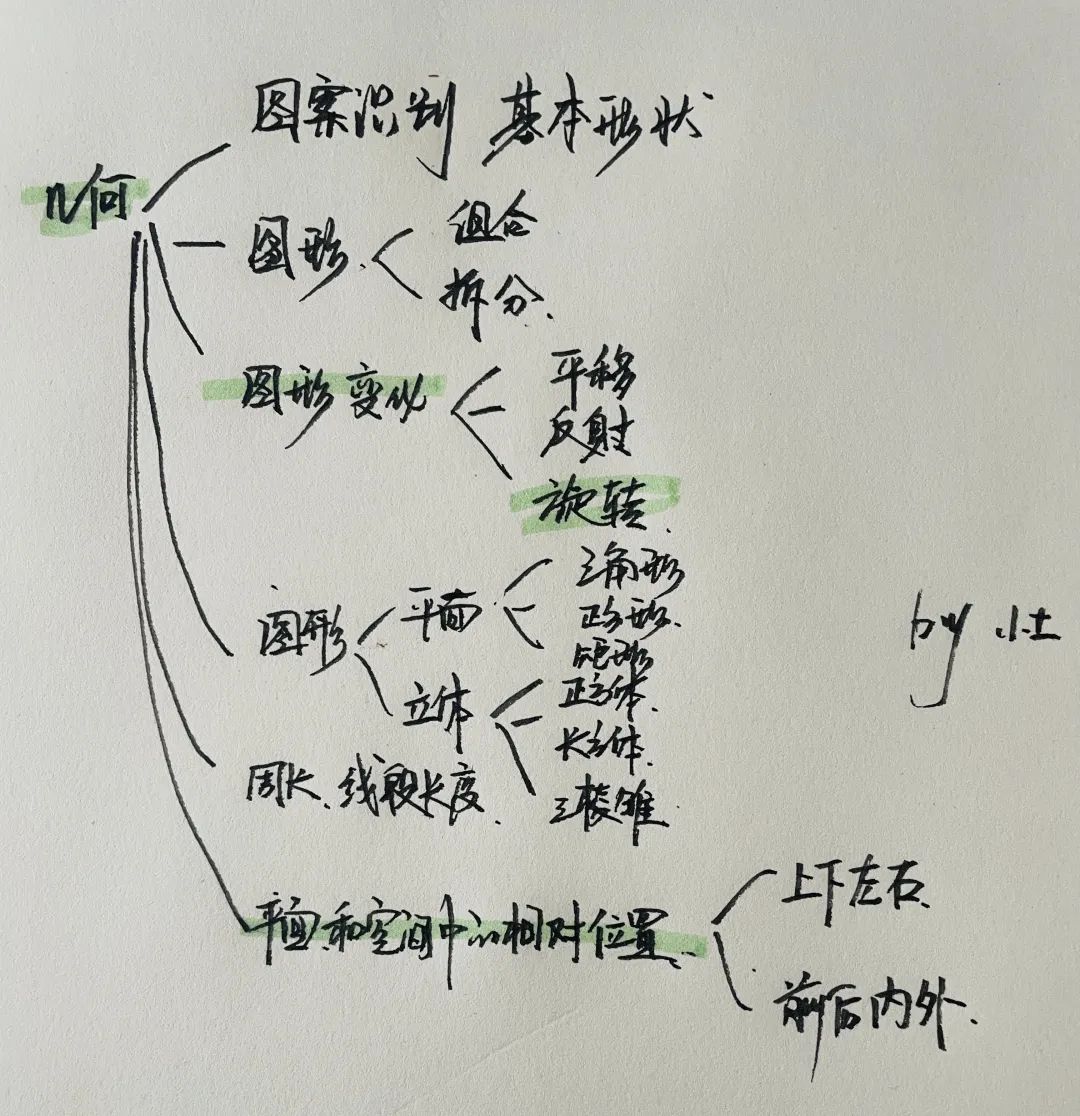 图案识别 基本形状
几何
组合
图形.
拆分.
平移
图形变化
反射
旋转.
三角形
平面
正方形.
图形
矩形
立体
正方体.
长方体.
周长、线段长度.
三棱锥.
by 小土
上下左右.
平面和空间中的相对位置.
前后内外.